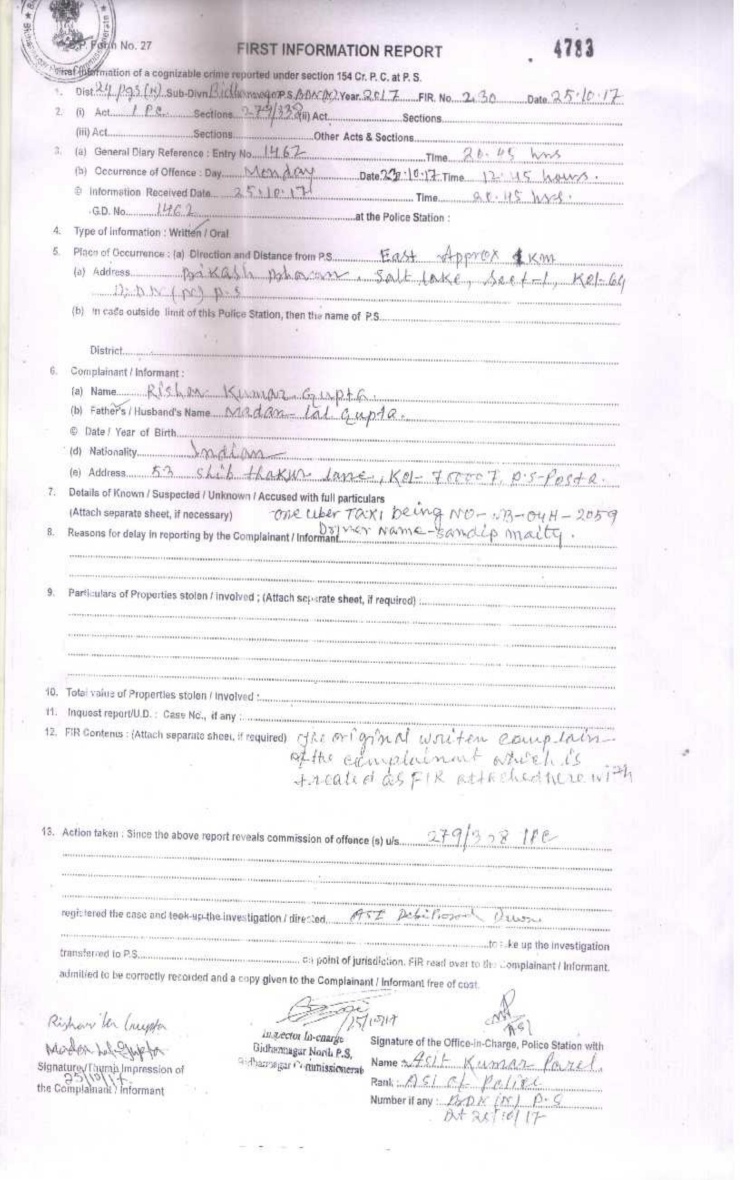 Form No. 27
FIRST INFORMATION REPORT
4783
First Information of a cognizable crime reported under section 154 Cr. P. C. at P. S.
1. Dist. 24 pgs (N) Sub-Divn. Bidhannagar P.S. BDN(N) Year. 2017 FIR. No. 230 Date 25.10.17
2. (i) Act IPC Sections 279/338 (ii) Act Sections
(iii) Act Sections Other Acts & Sections
3. (a) General Diary Reference : Entry No. 1462 Time 20.45 hrs
(b) Occurrence of Offence : Day Monday Date 23.10.17 Time 12.45 hours.
© Information Received Date 25.10.17 Time 20.45 hrs.
G.D. No. 1462 at the Police Station :
4. Type of information : Written / Oral
5. Place of Occurrence : (a) Direction and Distance from P.S. East Approx 1 Km
(a) Address Salt Lake, Sect-1, Kol-64
(N) P.S
(b) In case outside limit of this Police Station, then the name of P.S.
District
6. Complainant / Informant :
(a) Name Rishav Kumar Gupta.
(b) Father's / Husband's Name Madan Lal Gupta.
© Date / Year of Birth
(d) Nationality Indian
(e) Address 53 Shib Thakur Lane, Kol-700007, P.S-Posta.
7. Details of Known / Suspected / Unknown / Accused with full particulars
(Attach separate sheet, if necessary) One Uber TAXI being NO-WB-04H-2059
Driver Name-Sandip Maity.
8. Reasons for delay in reporting by the Complainant / Informant
9. Particulars of Properties stolen / involved ; (Attach separate sheet, if required) :
10. Total value of Properties stolen / Involved :
11. Inquest report/U.D. : Case No., if any :
12. FIR Contents : (Attach separate sheet, if required) The original written complain
of the complainant which is
treated as FIR attached here with
13. Action taken : Since the above report reveals commission of offence (s) u/s 279/338 IPC
registered the case and took-up-the-investigation / directed ASI
to take up the investigation
transferred to P.S. on point of jurisdiction. FIR read over to the Complainant / Informant.
admitted to be correctly recorded and a copy given to the Complainant / Informant free of cost.
Rishav Kr Gupta
Madan Lal Gupta
25/10/17
Signature/Thumb Impression of
the Complainant / Informant
25/10/17
Inspector In-charge
Bidhannagar North P.S,
Bidhannagar Commissionerate
ASI
Signature of the Office-in-Charge, Police Station with
Name : Asit Kumar
Rank : ASI of Police
Number if any : BDN (N) P.S
Dt 25/10/17